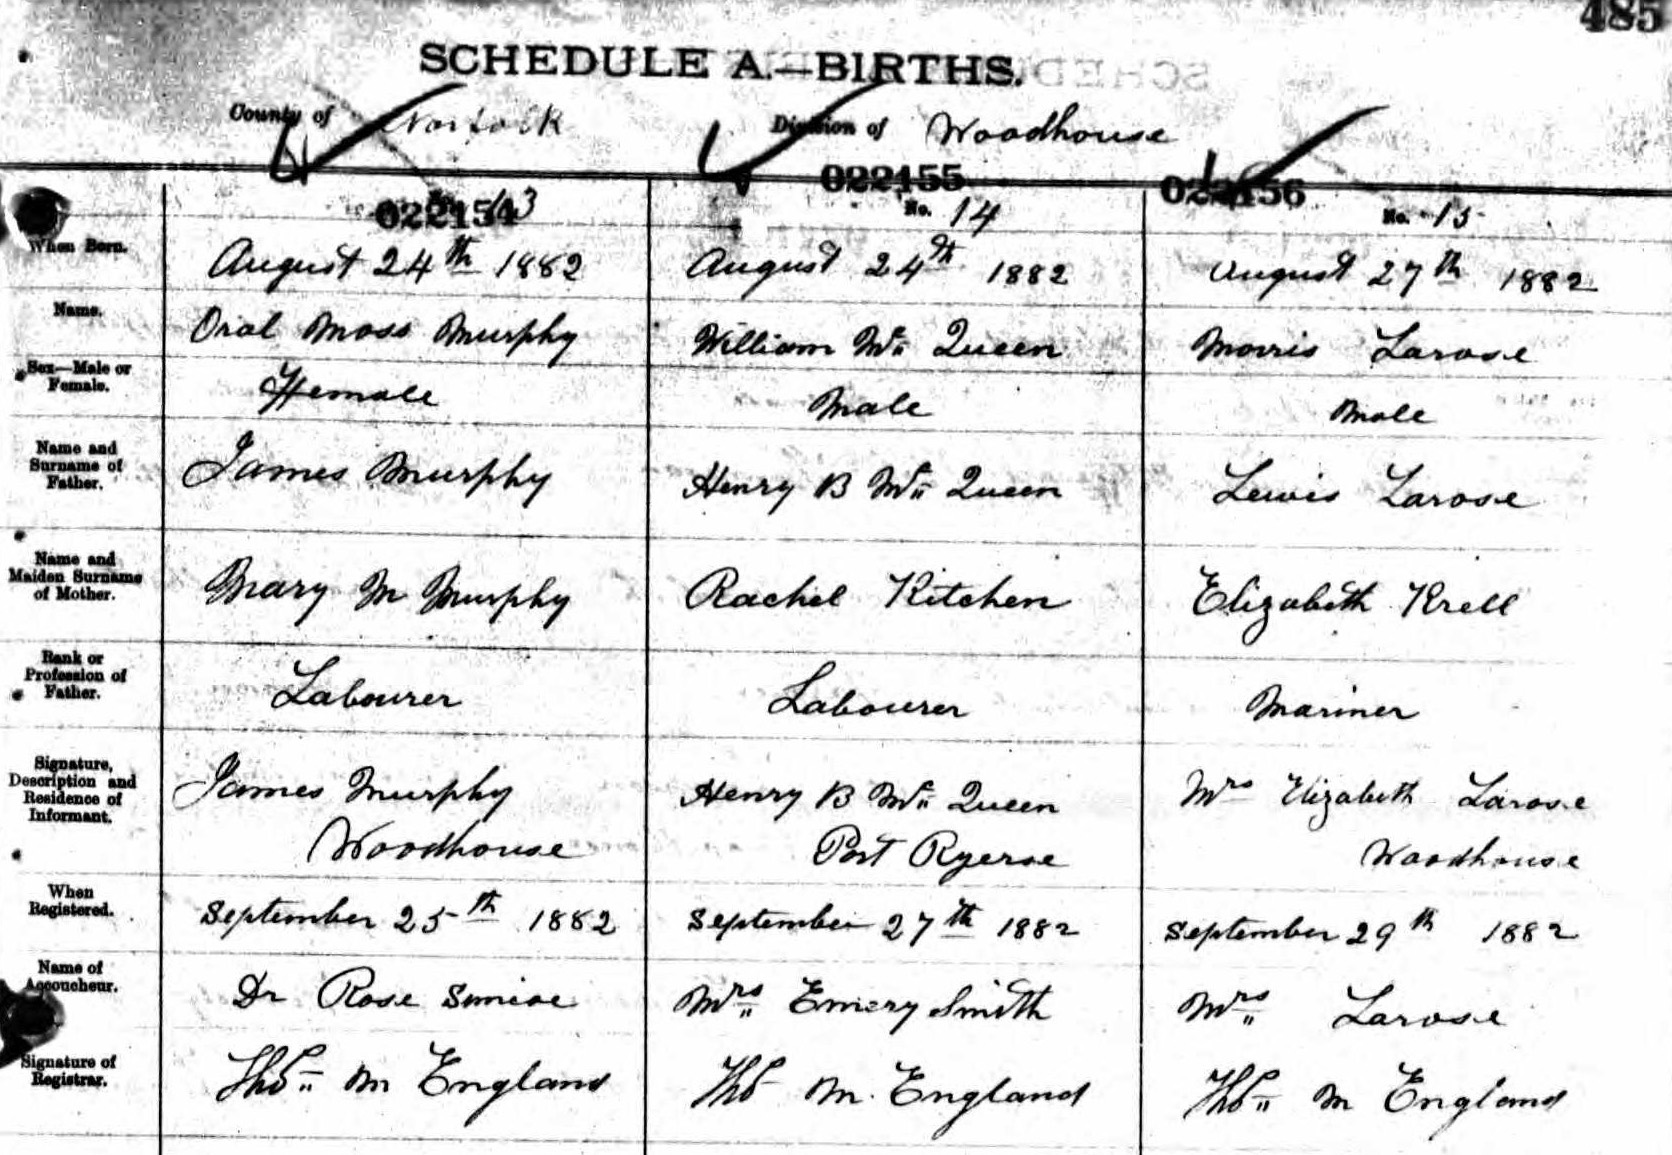 485
SCHEDULE A.—BIRTHS.
County of Norfolk Division of Woodhouse
022154 13 022155 No. 14 022156 No. 15
When Born. August 24th 1882 August 24th 1882 August 27th 1882
Name. Oral Moss Murphy William Mc Queen Morris Larose
Sex—Male or Female. Female Male Male
Name and Surname of Father. James Murphy Henry B Mc Queen Lewis Larose
Name and Maiden Surname of Mother. Mary M Murphy Rachel Kitchen Elizabeth Krell
Rank or Profession of Father. Labourer Labourer Mariner
Signature, Description and Residence of Informant. James Murphy Henry B Mc Queen Mrs Elizabeth Larose
Woodhouse Port Ryerse Woodhouse
When Registered. September 25th 1882 September 27th 1882 September 29th 1882
Name of Accoucheur. Dr Rose Simcoe Mrs Emery Smith Mrs Larose
Signature of Registrar. Thos M England Thos M. England Thos M England